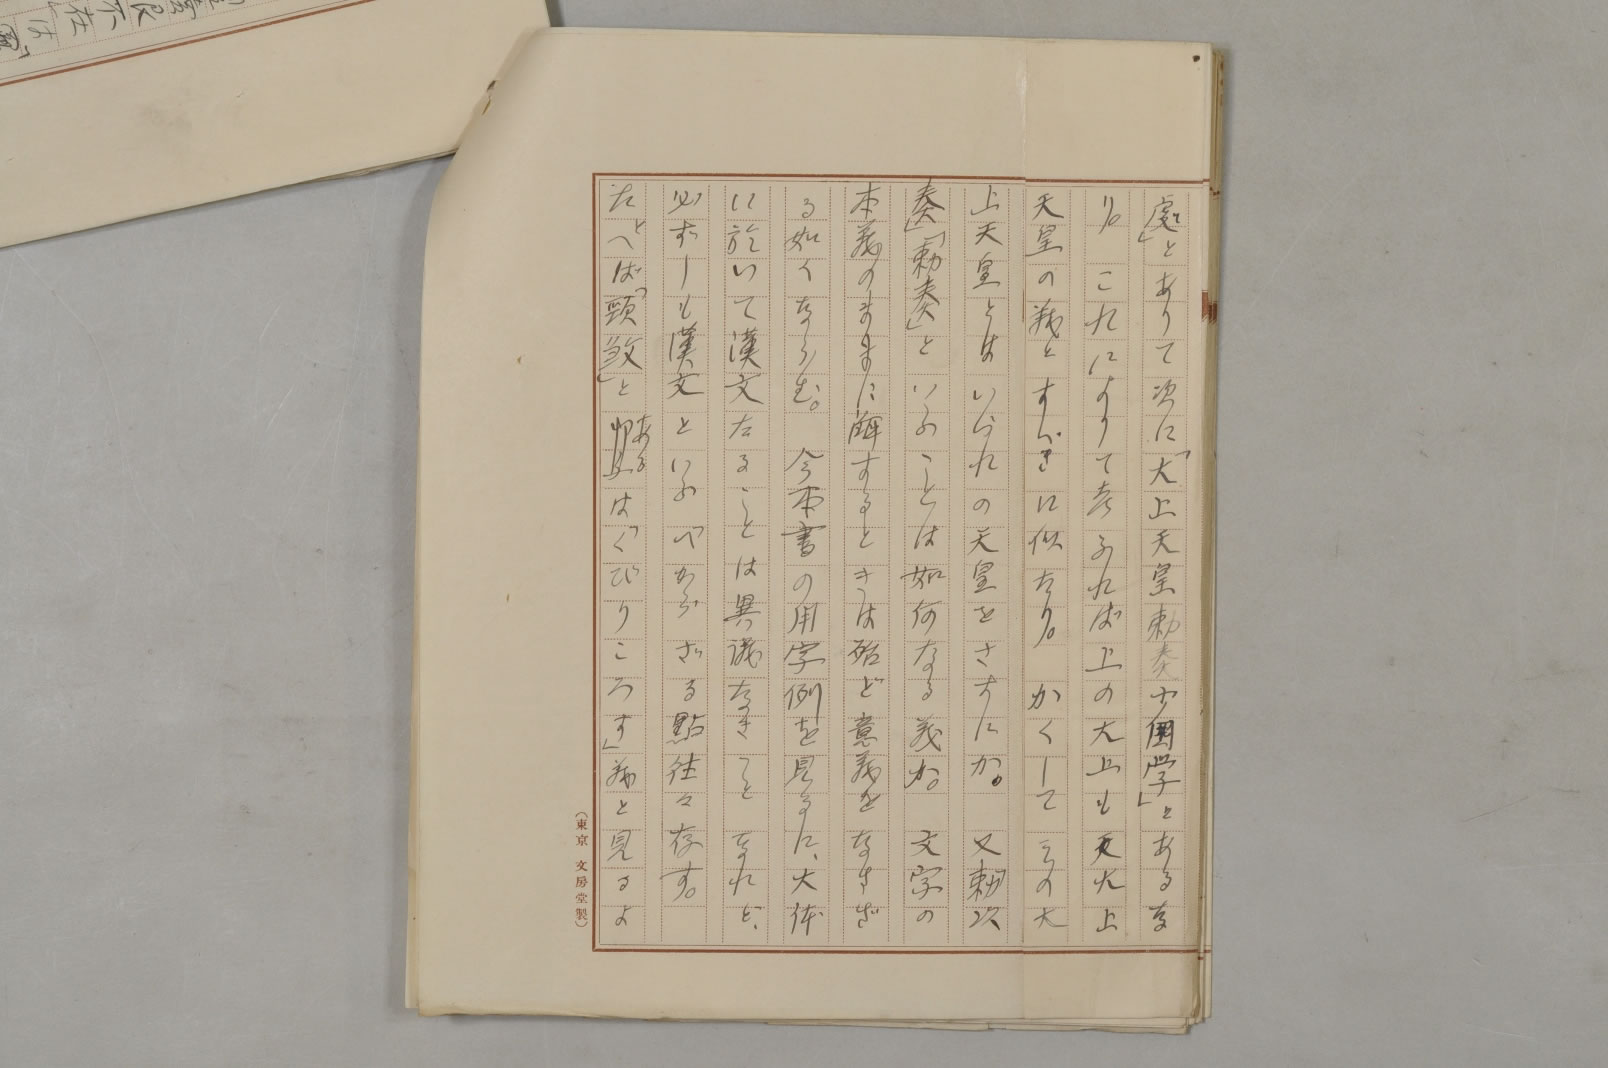 處」とありて次に「大上天皇勅奏少国学」とあるな
り。これによりて考ふれば上の大上も天大上
天皇の義とすべきに似たり。かくしてこの大
上天皇とはいづれの天皇をさすにか。又「勅次
奏」「勅奏」といふことは如何なる義か。文字の
本義のままに解するときは殆ど意義をなさざ
る如くならむ。今本書の用字例を見るに、大体
に於いて漢文たることは異議なきことなれど、
必ずしも漢文といふべからざる點往々存す。
たとへば「頸煞」とあるは「くびりころす」義と見るよ
(東京 文房堂製)